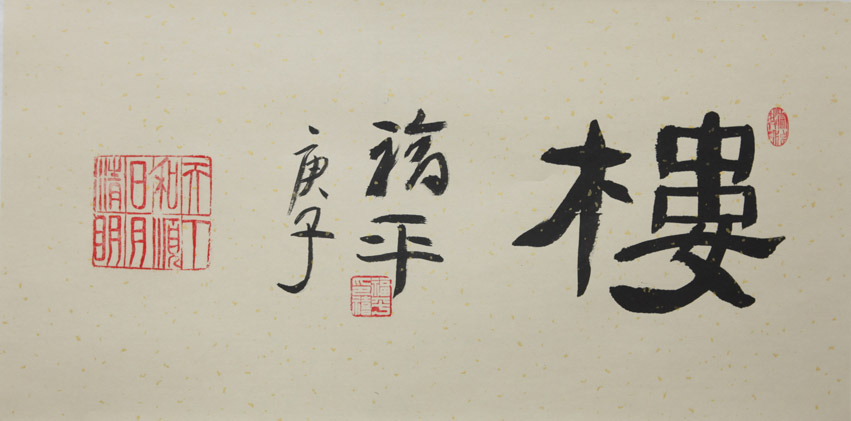 樓
福平
庚子
天下和順日月清明